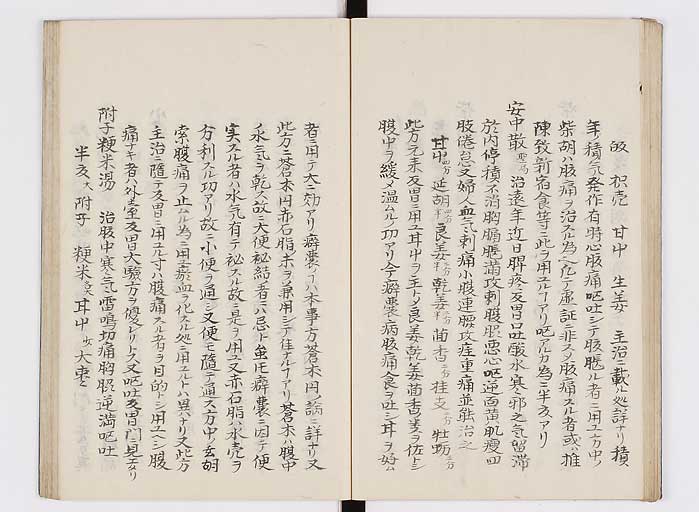 皈 枳壳 甘中 生姜 主治ニ載ル処詳ナリ積
年ノ積気発作有時心腹痛嘔吐シテ腹脹ル者ニ用エ方中ノ
柴胡ハ腹痛ヲ治スル為 虚証ニ非スメ腹痛スル者或ハ推
陳致新宿食等ニ此ヲ用エルフアリ嘔アルカ為ニ半夏アリ
安中散 治遠年近日脾疼反胃口吐酸水寒邪之気留滞
於内停積不消胸膈脹満攻刺腹脹悪心嘔逆面黄肌痩四
肢倦怠又婦人血気刺痛小腹連腰攻疰重痛並能治之
甘中 延胡 良姜 乾姜 茴香 桂支 牡蛎
此方元来反胃ニ用エ甘中ヲ主トシ良姜乾姜茴香ヲ佐トシ
腹中ヲ緩メ温ムルノ功アリ今癖嚢病腹痛食ヲ吐シ甘ヲ好ム
者ニ用テ大ニ効アリ癖嚢 ハ本事方蒼朮円ノ論ニ詳ナリ又
此方ニ蒼朮円赤石脂 ヲ兼用シテ佳ナルフアリ蒼朮ハ腹中
ノ水気ヲ乾ス故ニ大便秘結者ニハ忌ト虽 癖嚢ニ因テ便
実スル者ハ水気有テ秘スル故ニ是ヲ用エ又赤石脂ハ水壳ヲ
分利スル功アリ故ニ小便ヲ通シ又便モ随テ通ス方中ノ玄胡
索腹痛ヲ止ムル為ニ用エ瘀血ヲ化スル処ニ用エルトハ異ナリ又此方
主治ニ随テ反胃ニ用ユル寸ハ腹痛スル者ヲ目的トシ用エヘシ腹
痛ナキ者ハ外 反胃大験方ヲ優レリトス又嘔吐反胃門見エタリ
附子粳米湯 治腹中寒気雷鳴切痛胸脇逆満嘔吐
半夏 大附子 粳米 甘中 大棗